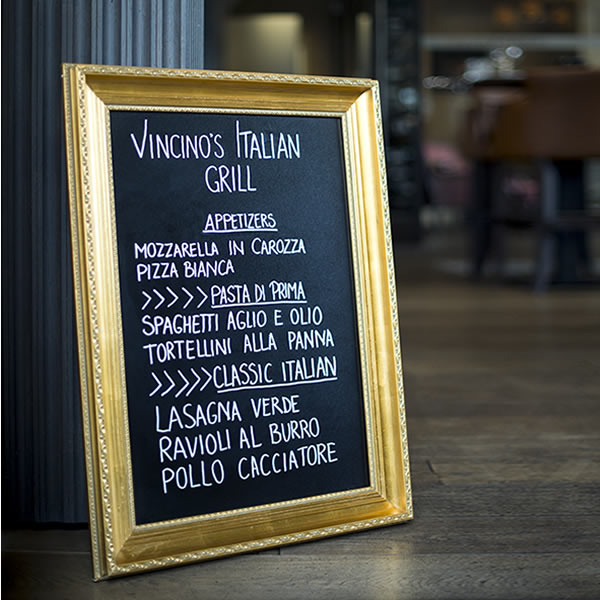 VINCINO'S ITALIAN
GRILL
APPETIZERS
MOZZARELLA IN CAROZZA
PIZZA BIANCA
>>>>> PASTA DI PRIMA
SPAGHETTI AGLIO E OLIO
TORTELLINI ALLA PANNA
>>>>> CLASSIC ITALIAN
LASAGNA VERDE
RAVIOLI AL BURRO
POLLO CACCIATORE